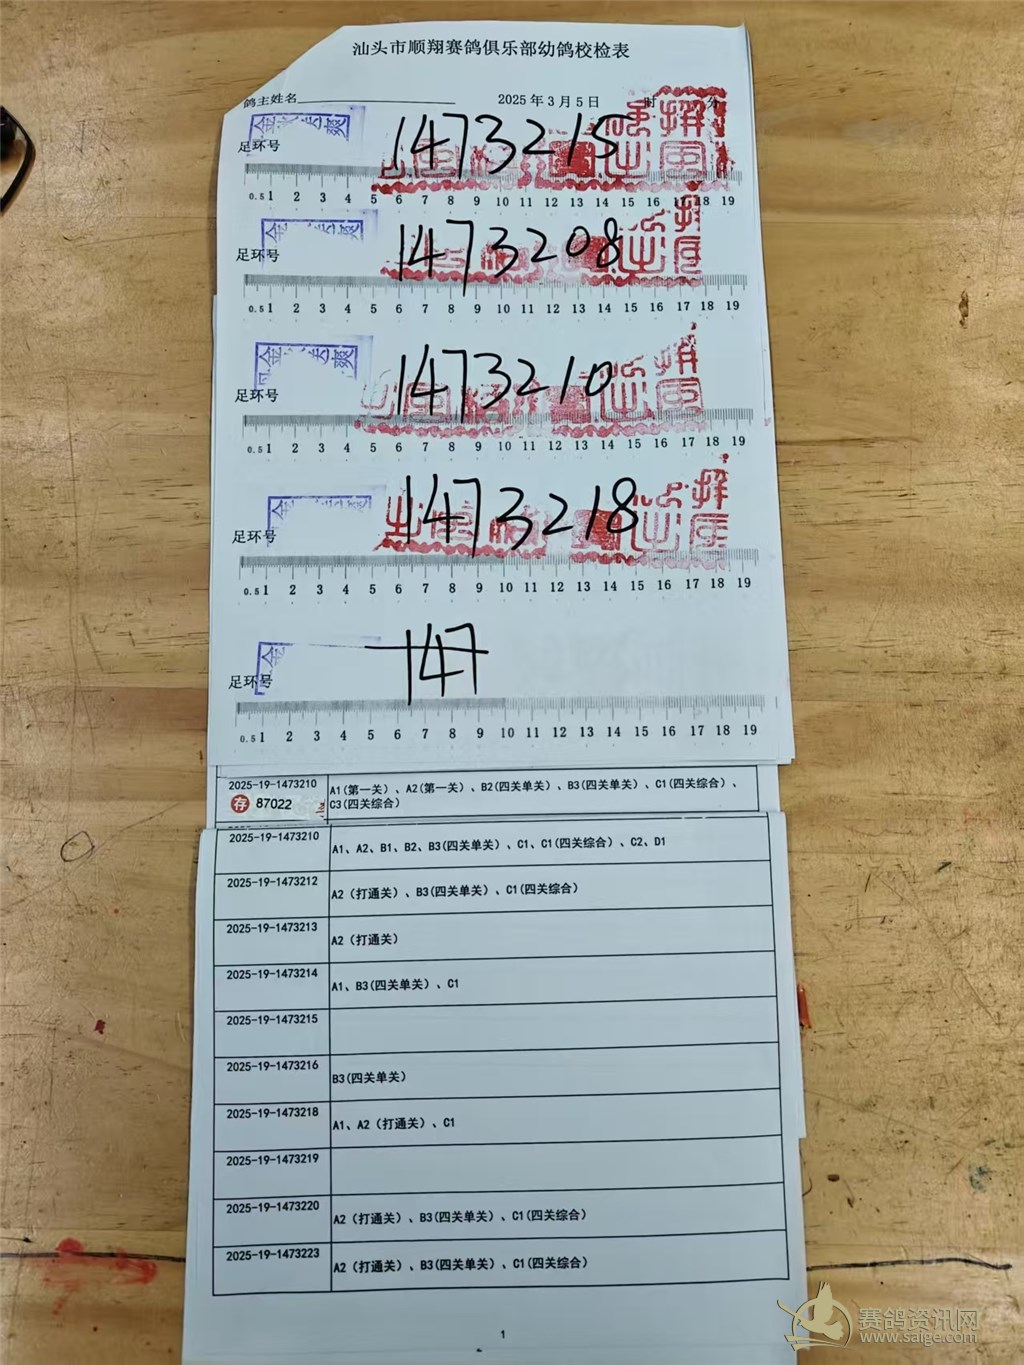 汕头市顺翔赛鸽俱乐部幼鸽校检表
鸽主姓名 2025年3月5日 时 分
足环号 1473215
0.5 1 2 3 4 5 6 7 8 9 10 11 12 13 14 15 16 17 18 19
足环号 1473208
0.5 1 2 3 4 5 6 7 8 9 10 11 12 13 14 15 16 17 18 19
足环号 1473210
0.5 1 2 3 4 5 6 7 8 9 10 11 12 13 14 15 16 17 18 19
足环号 1473218
0.5 1 2 3 4 5 6 7 8 9 10 11 12 13 14 15 16 17 18 19
足环号 147
0.5 1 2 3 4 5 6 7 8 9 10 11 12 13 14 15 16 17 18 19
2025-19-1473210 A1(第一关)、A2(第一关)、B2(四关单关)、B3(四关单关)、C1(四关综合)、
存 87022 C3(四关综合)
2025-19-1473210 A1、A2、B1、B2、B3(四关单关)、C1、C1(四关综合)、C2、D1
2025-19-1473212 A2(打通关)、B3(四关单关)、C1(四关综合)
2025-19-1473213 A2(打通关)
2025-19-1473214 A1、B3(四关单关)、C1
2025-19-1473215
2025-19-1473216 B3(四关单关)
2025-19-1473218 A1、A2(打通关)、C1
2025-19-1473219
2025-19-1473220 A2(打通关)、B3(四关单关)、C1(四关综合)
2025-19-1473223 A2(打通关)、B3(四关单关)、C1(四关综合)
1
赛鸽资讯网
www.saige.com